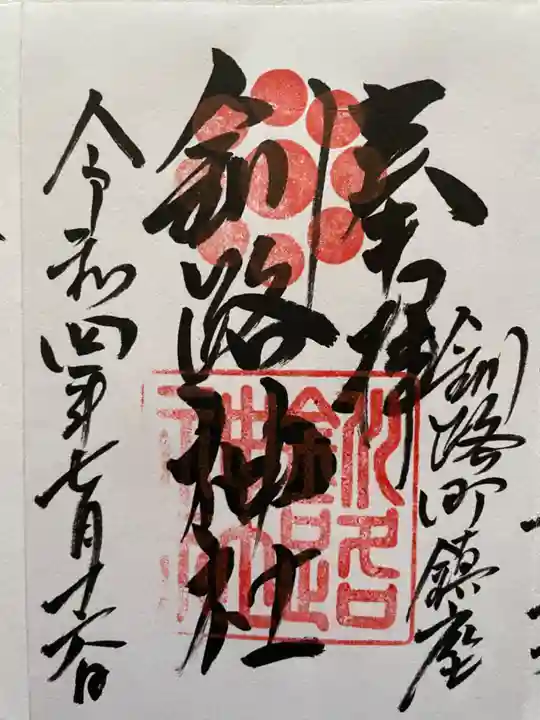 奉拝
釧路町鎮座
釧路神社
釧路神社
令和四年七月十六日